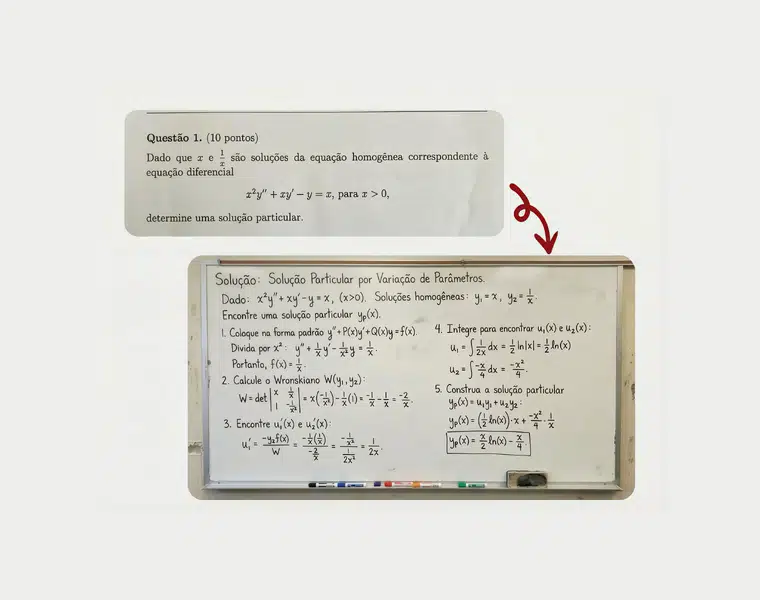 Questão 1. (10 pontos)
Dado que x e 1/x são soluções da equação homogênea correspondente à
equação diferencial
x²y″ + xy′ − y = x, para x > 0,
determine uma solução particular.
Solução: Solução Particular por Variação de Parâmetros.
Dado: x²y″ + xy′ − y = x, (x>0). Soluções homogêneas: y₁ = x, y₂ = 1/x.
Encontre uma solução particular yₚ(x).
1. Coloque na forma padrão y″+P(x)y′+Q(x)y=f(x).
Divida por x²: y″ + 1/x y′ − 1/x² y = 1/x.
Portanto, f(x) = 1/x.
2. Calcule o Wronskiano W(y₁,y₂):
W = det |x 1/x; 1 −1/x²| = x(−1/x²) − 1/x(1) = −1/x − 1/x = −2/x.
3. Encontre u₁′(x) e u₂′(x):
u₁′ = −y₂f(x)/W = −1/x(1/x)/(−2/x) = −1/x²/(1/2x²) = 1/2x.
4. Integre para encontrar u₁(x) e u₂(x):
u₁ = ∫ 1/2x dx = 1/2 ln|x| = 1/2 ln(x)
u₂ = ∫ −x/4 dx = −x²/4.
5. Construa a solução particular
yₚ(x) = u₁y₁ + u₂y₂:
yₚ(x) = (1/2 ln(x))·x + −x²/4 · 1/x
yₚ(x) = x/2 ln(x) − x/4